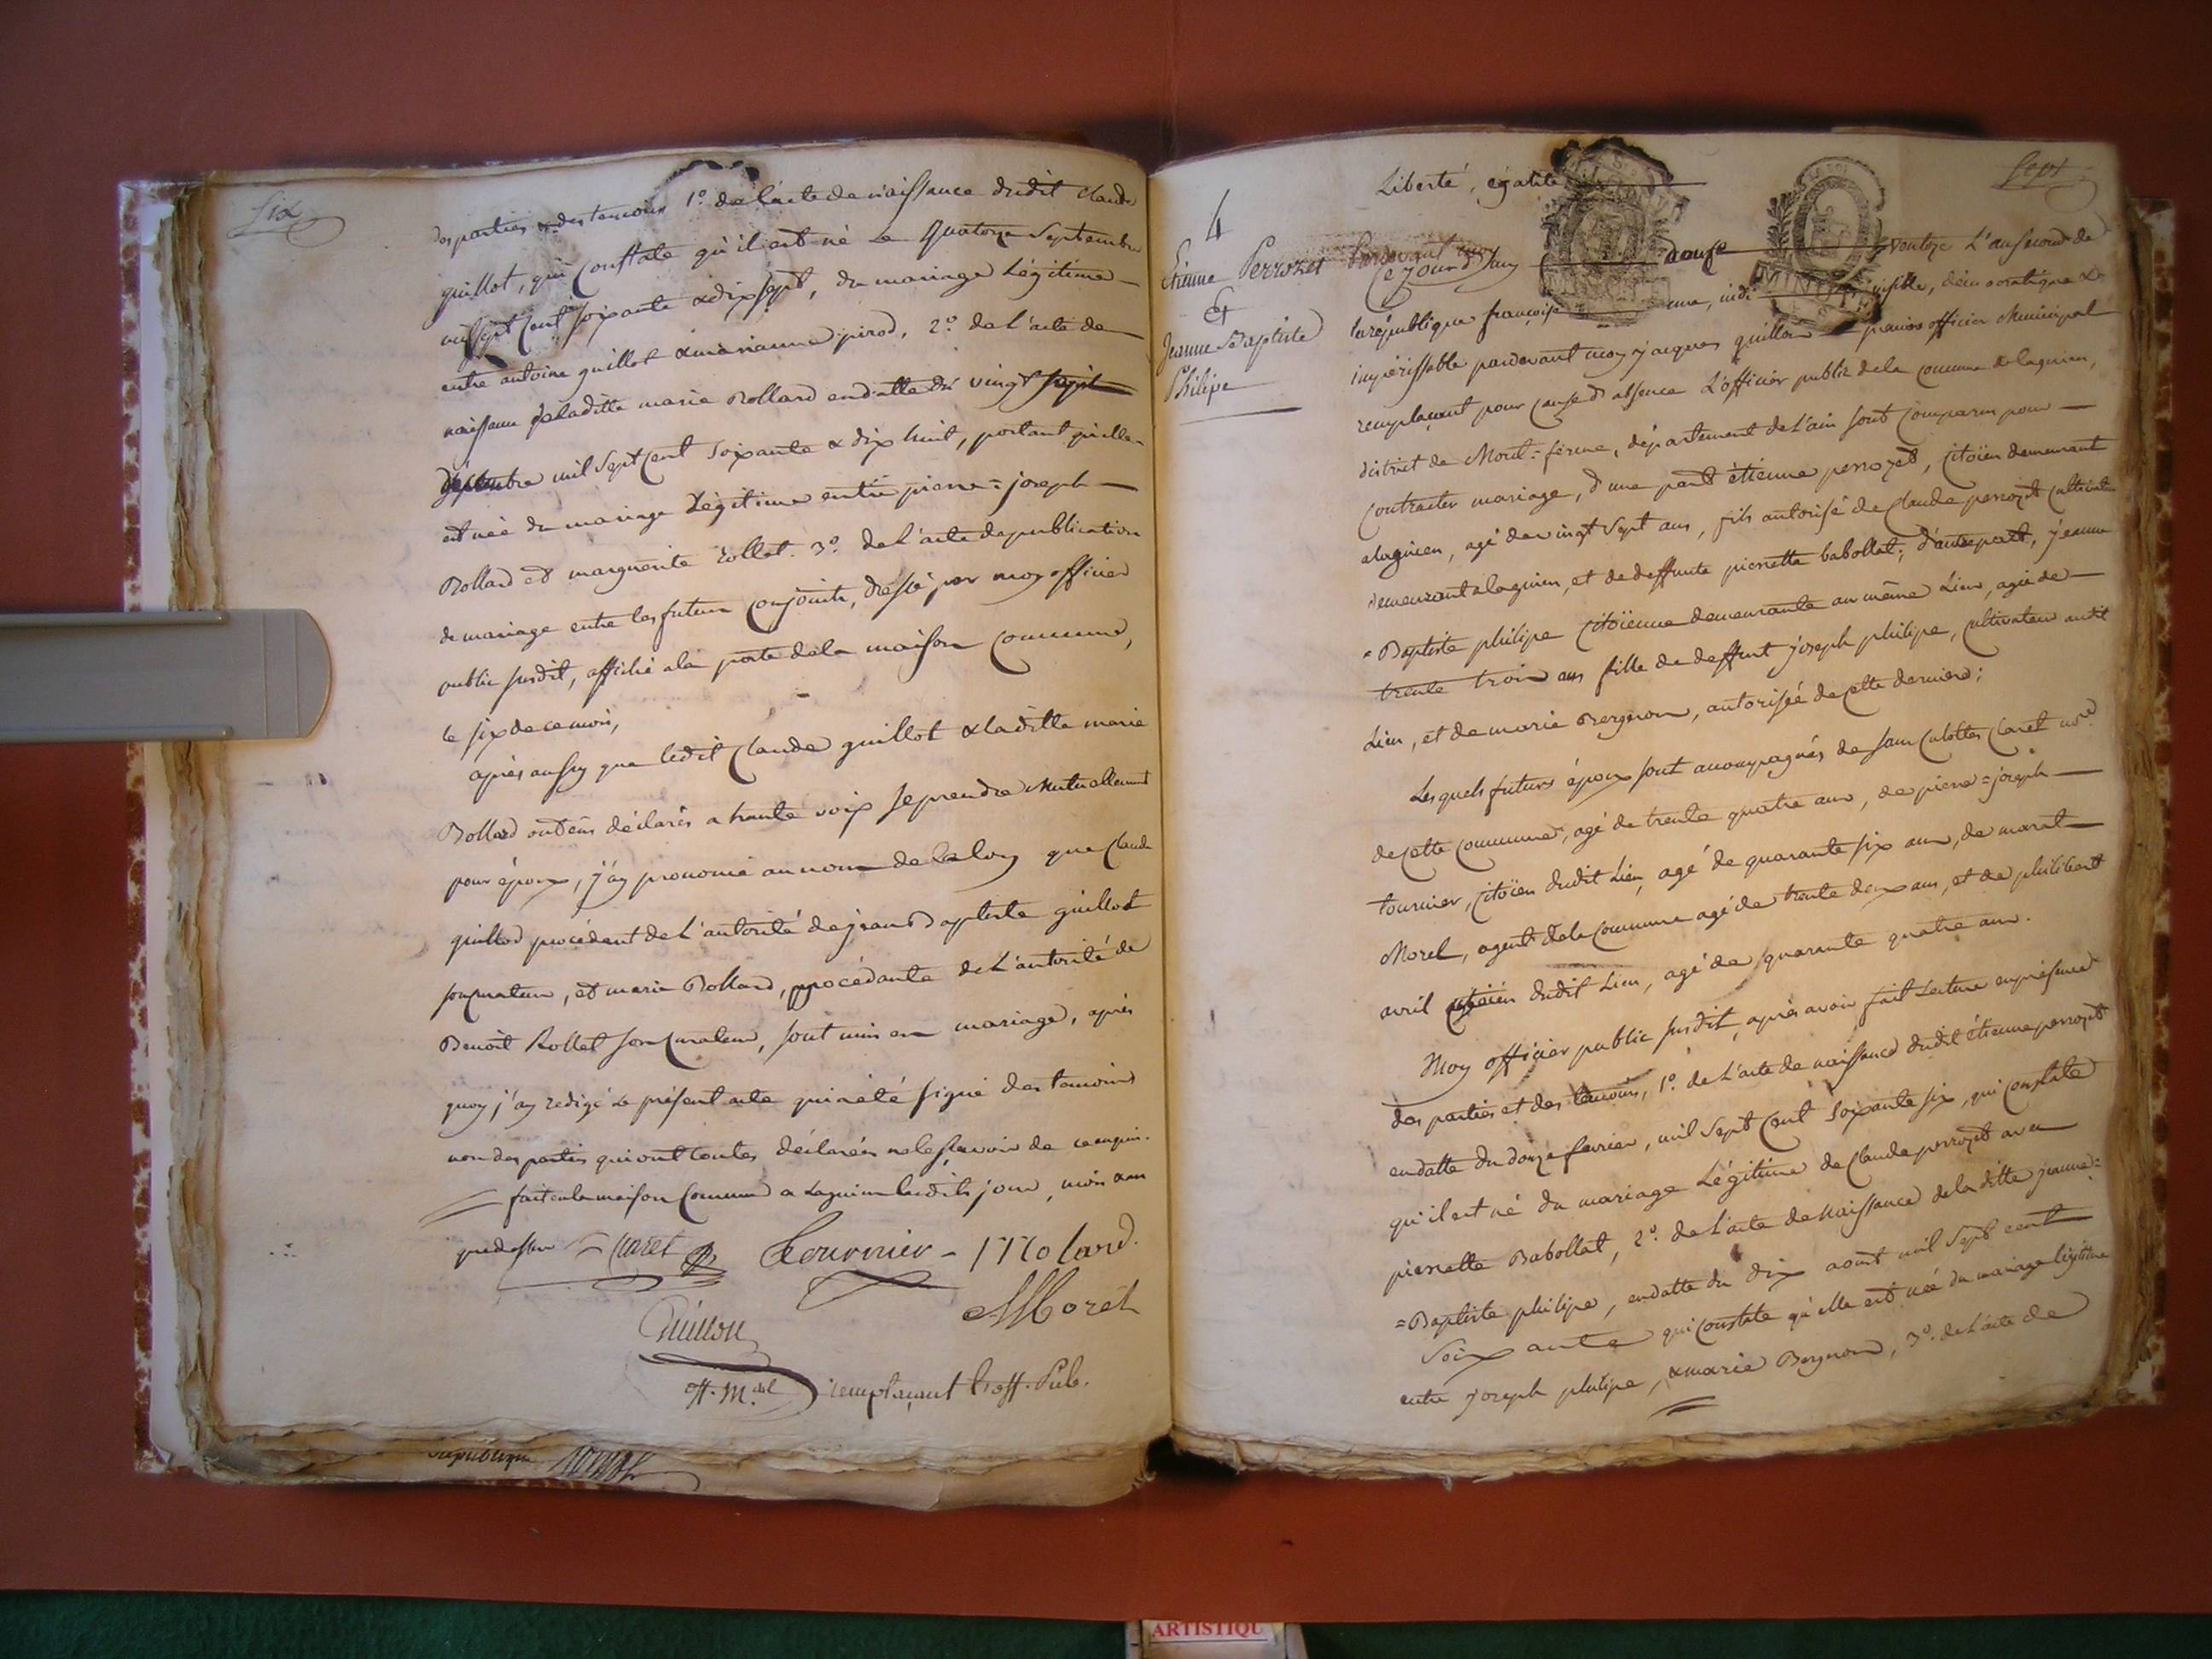 Six
des parties & des temoins 1.° de l'acte de naissance dudit Claude
guillot, qui Constate qu'il est né le Quatorze Septembre
mil sept Cent soixante & dix sept, du mariage Légitime
entre antoine guillot & marianne pirod, 2.° de L'acte de
naissance de laditte marie Rollard en datte du vingt sept
septembre mil Sept Cent Soixante & dix huit, portant qu'elle
est née du mariage Légitime entre pierre=joseph
Rollard et marguerite Rollet. 3.° de L'acte de publication
de mariage entre les futurs Conjoints, dressé par moy officier
public susdit, affiché a la porte de la maison Commune,
le six de ce mois,
après aussy que ledit Claude guillot & laditte marie
Rollard ont eus déclarés a haute voix se prendre Mutuellement
pour époux, j'ay prononcé au nom de la loy que Claude
guillot procédant de L'autorité de jean Baptiste guillot
son Curateur, et marie Rollard, procédante de L'autorité de
Benoit Rollet son Curateur, sont unis en mariage, après
quoy j'ay redigé Le présent acte qui a été signé des temoins
non des parties qui ont toutes déclarées ne le sçavoir de ce enquis.
fait en la maison Commune a Lagnieu lesdits jour, mois & an
que dessus Claret Tournier Molard.
Morel
Guillon
off. M.al remplaçant L'off. Pub.
république
Sept
Liberté, égalité
4
Etienne Perrozet
&
Jeanne Baptiste
Philipe
Pardevant moy
Cejourd'huy douse Ventoze L'an second de
la république françoise une, indivisible, démocratique &
impérissable pardevant moy jacques guillon premier officier Municipal
remplaçant pour Cause d'absence L'officier public de la Comune de lagnieu,
district de Mont=ferme, département de L'ain sont Comparus pour
Contracter mariage, d'une part étienne perrozet, Citoïen demeurant
a lagnieu, agé de vingt Sept ans, fils autorisé de Claude perrozet Cultivateur
demeurant a lagnieu, et de deffunte pierrette babollat; d'autre part, jeanne
=Baptiste philipe Citoïenne demeurante au même Lieu, agée de
trente trois ans fille de deffunt joseph philipe, Cultivateur audit
Lieu, et de marie Bergeron, autorisée de cette derniere;
Lesquels futurs époux sont accompagnés de sans Culottes Claret no.re
de cette Commune, agé de trente quatre ans, de pierre=joseph
tournier, Citoïen dudit Lieu, agé de quarante six ans, de marat
Morel, agent de la Commune agé de trente deux ans, et de philibert
avril Citoïen dudit Lieu, agé de quarante quatre ans.
Moy officier public susdit, après avoir fait Lecture en présence
des parties et des temoins, 1.° de L'acte de naissance dudit étienne perrozet
en datte du douze fevrier, mil Sept Cent Soixante six, qui Constate
qu'il est né du mariage Légitime de Claude perrozet avec
pierrette Babollat, 2.° de L'acte de Naissance de la ditte jeanne=
=Baptiste philipe, en datte du dix aout mil Sept cent
Soixante qui Constate qu'elle est née du mariage légitime
entre joseph philipe, & marie Bergeron, 3.° de L'acte de
ARTISTIQU